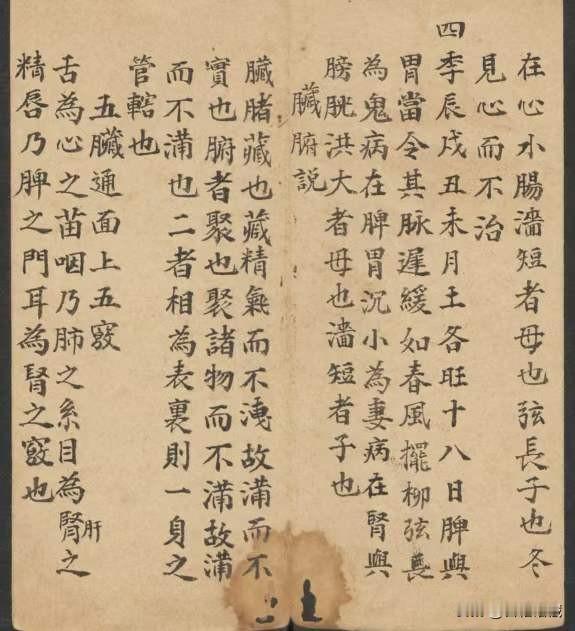 在心小腸濇短者母也弦長子也冬
見心而不治
四季辰戌丑未月土各旺十八日脾與
胃當令其脉遲緩如春風擺柳弦長
為鬼病在脾胃沉小為妻病在腎與
膀胱洪大者母也濇短者子也
臟腑説
臟者藏也藏精氣而不洩故滿而不
實也腑者聚也聚諸物而不滿故滿
而不滿也二者相為表裏則一身之
管轄也
五臟通面上五竅
舌為心之苗咽乃肺之系目為腎肝之
精唇乃脾之門耳為腎之竅也